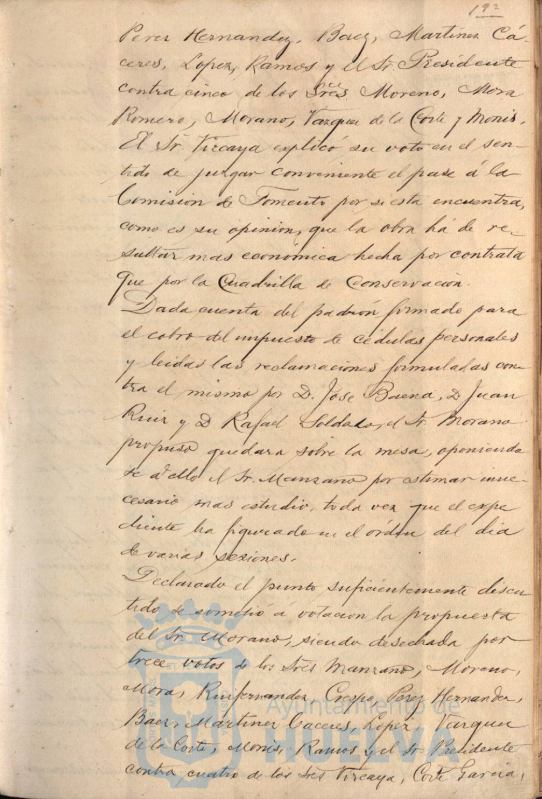 Perez Hernandez, Baez, Martinez Cá-
ceres, Lopez, Ramos y el Sr. Presidente
contra cinco de los Sres Moreno, Mora
Romero, Morano, Vazquez de la Corte y Monis.
El Sr. Vizcaya explicó su voto en el sen-
tido de juzgar conveniente el pase á la
Comision de Fomento por si esta encuentra,
como es su opinion, que la obra há de re-
sultar mas económica hecha por contrata
que por la Cuadrilla de Conservación.
Dada cuenta del padrón formado para
el cobro del impuesto de cédulas personales
y leidas las reclamaciones formuladas con-
tra el mismo por D. José Baena, D. Juan
Ruiz y D Rafael Soldado, el Sr. Morano
propuso quedara sobre la mesa, oponiendo
se á ello el Sr. Manzano por estimar inne-
cesario mas estudio, toda vez que el expe
diente ha figurado en el órden del dia
de varias sesiones.
Declarado el punto suficientemente discu-
tido se sometió á votacion la propuesta
del Sr. Morano, siendo desechada por
trece votos de los Sres Manzano, Moreno,
Mora, Ruifernandez, Crespo, Perez Hernandez,
Baez, Martinez Caceres, Lopez, Vazquez
de la Corte, Monis, Ramos y el Sr. Presidente
contra cuatro de los Sres Vizcaya, Corte Garcia,
Ayuntamiento de
HUELVA